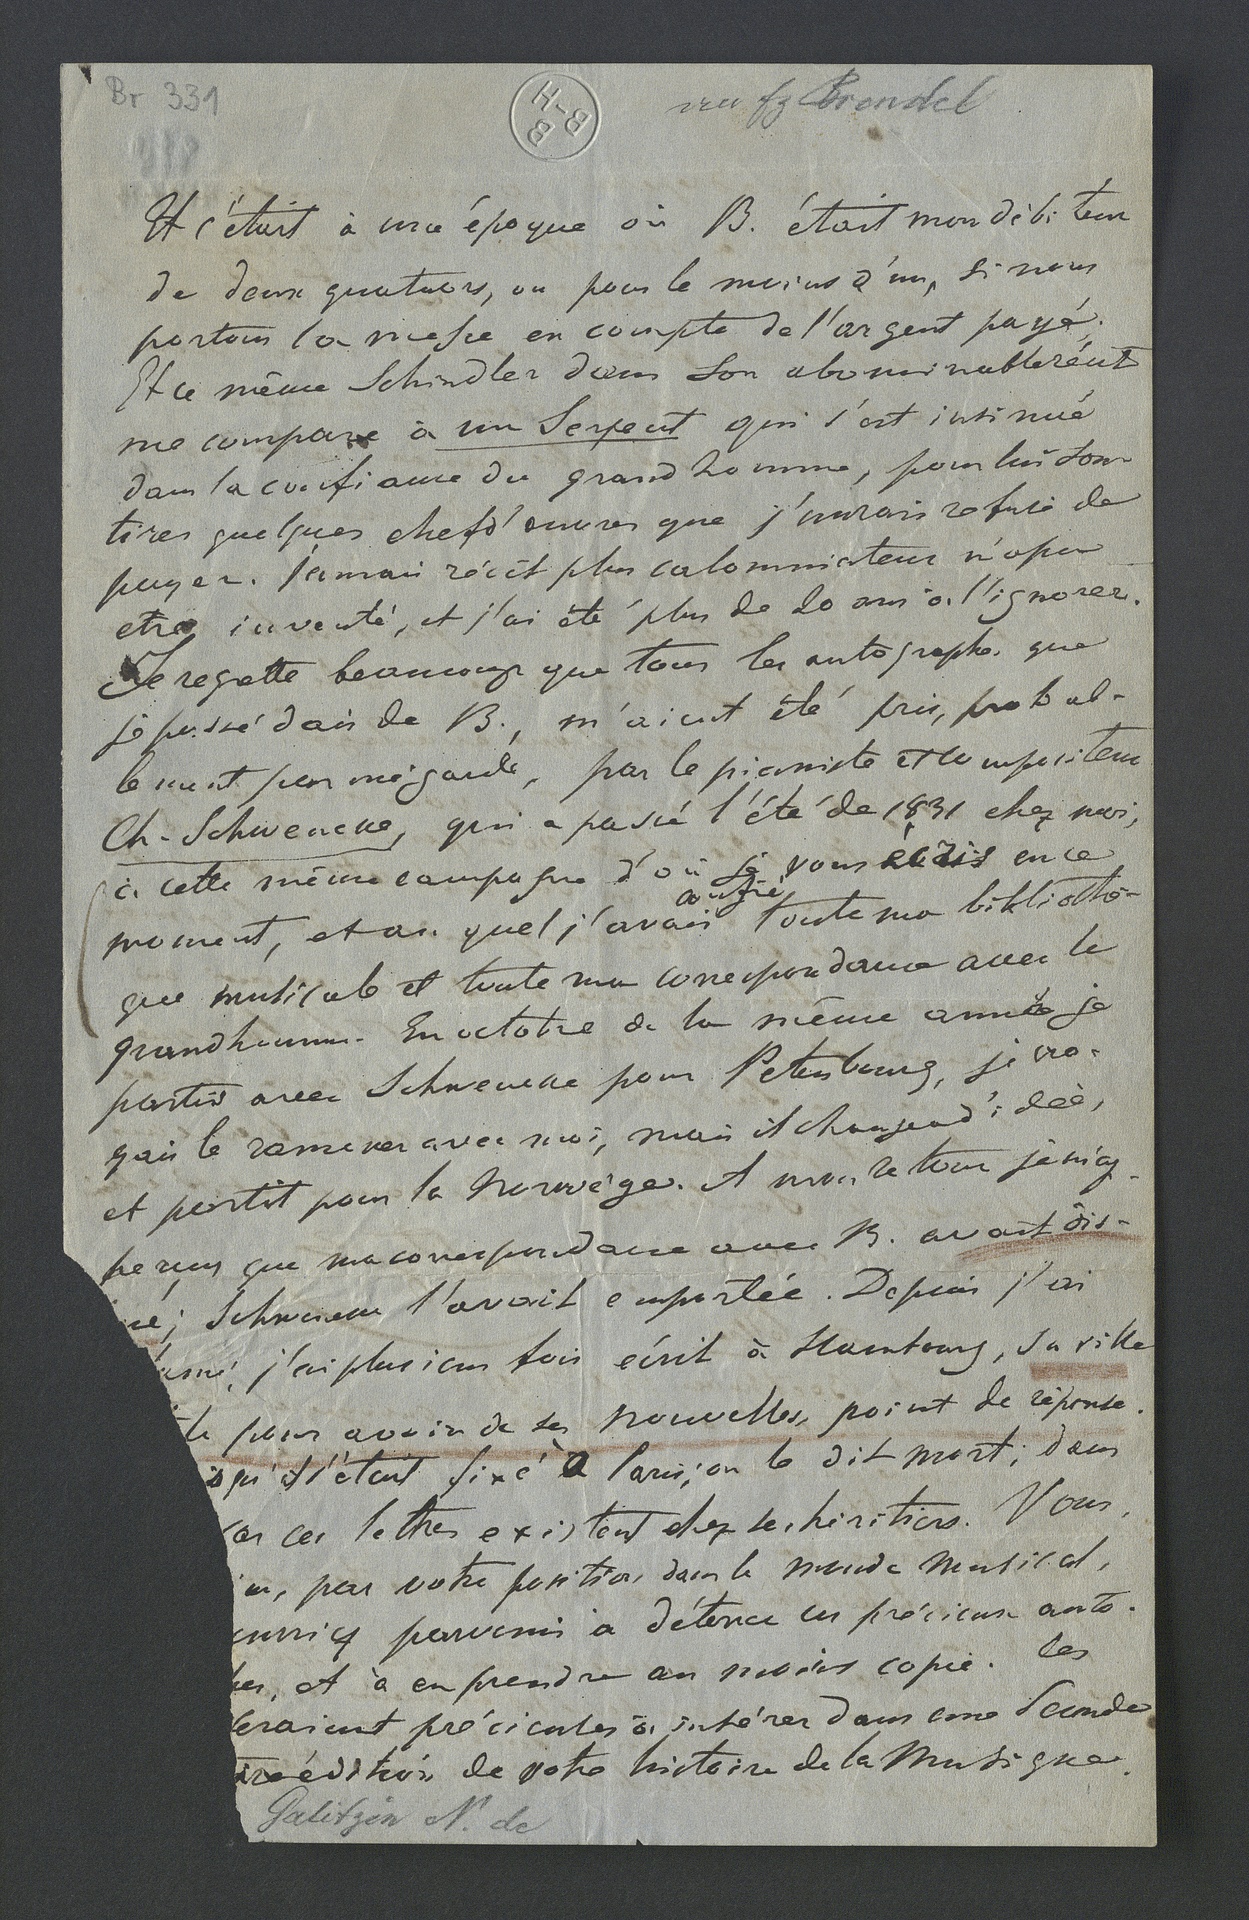 Br 331
B-H B
an fz Brendel
Et c'était à une époque où B. était mon débiteur
de deux quatuors, ou pour le moins d'un, si nous
portons la messe en compte de l'argent payé.
Et ce même Schindler dans son abominable récit
me compare à un Serpent qui s'est insinué
dans la confiance du grand homme, pour lui sou-
tirer quelques chefs d'œuvres que j'aurais refusé de
payer. Jamais récit plus calomniateur n'a pu
etre inventé, et j'ai été plus de 20 ans à l'ignorer.
Je regette beaucoup que tous les autographes que
je possédais de B., m'aient été pris, probab-
lement par mégarde, par le pianiste et compositeur
Ch. Schwencke, qui a passé l'été de 1831 chez moi,
à cette même campagne d'où je vous écris en ce
moment, et au quel j'avais confié toute ma bibliothè-
que musicale et toute ma correspondance avec le
grand homme. En octobre de la même année je
partis avec Schwencke pour Petersbourg, je cro-
yais le ramener avec moi, mais il changea d'idée,
et partit pour la Norwège. A mon retour je m'ap-
perçus que ma correspondance avec B. avait dis-
ué; Schwencke l'avait emportée. Depuis j'ai
amé, j'ai plusieurs fois écrit à Hambourg, sa ville
le pour avoir de ses nouvelles, point de réponse.
is qu'il s'était fixé à Paris; on le dit mort; dans
cas ces lettres existent chez ses héritiers. Vous,
ur, par votre position dans le monde musical,
urriez parvenir à déterrer ces précieux auto-
hes, et à en prendre au moins copie. Les
eraient précieuses à insérer dans une seconde
édition de votre histoire de la Musique.
Galitzin N. de